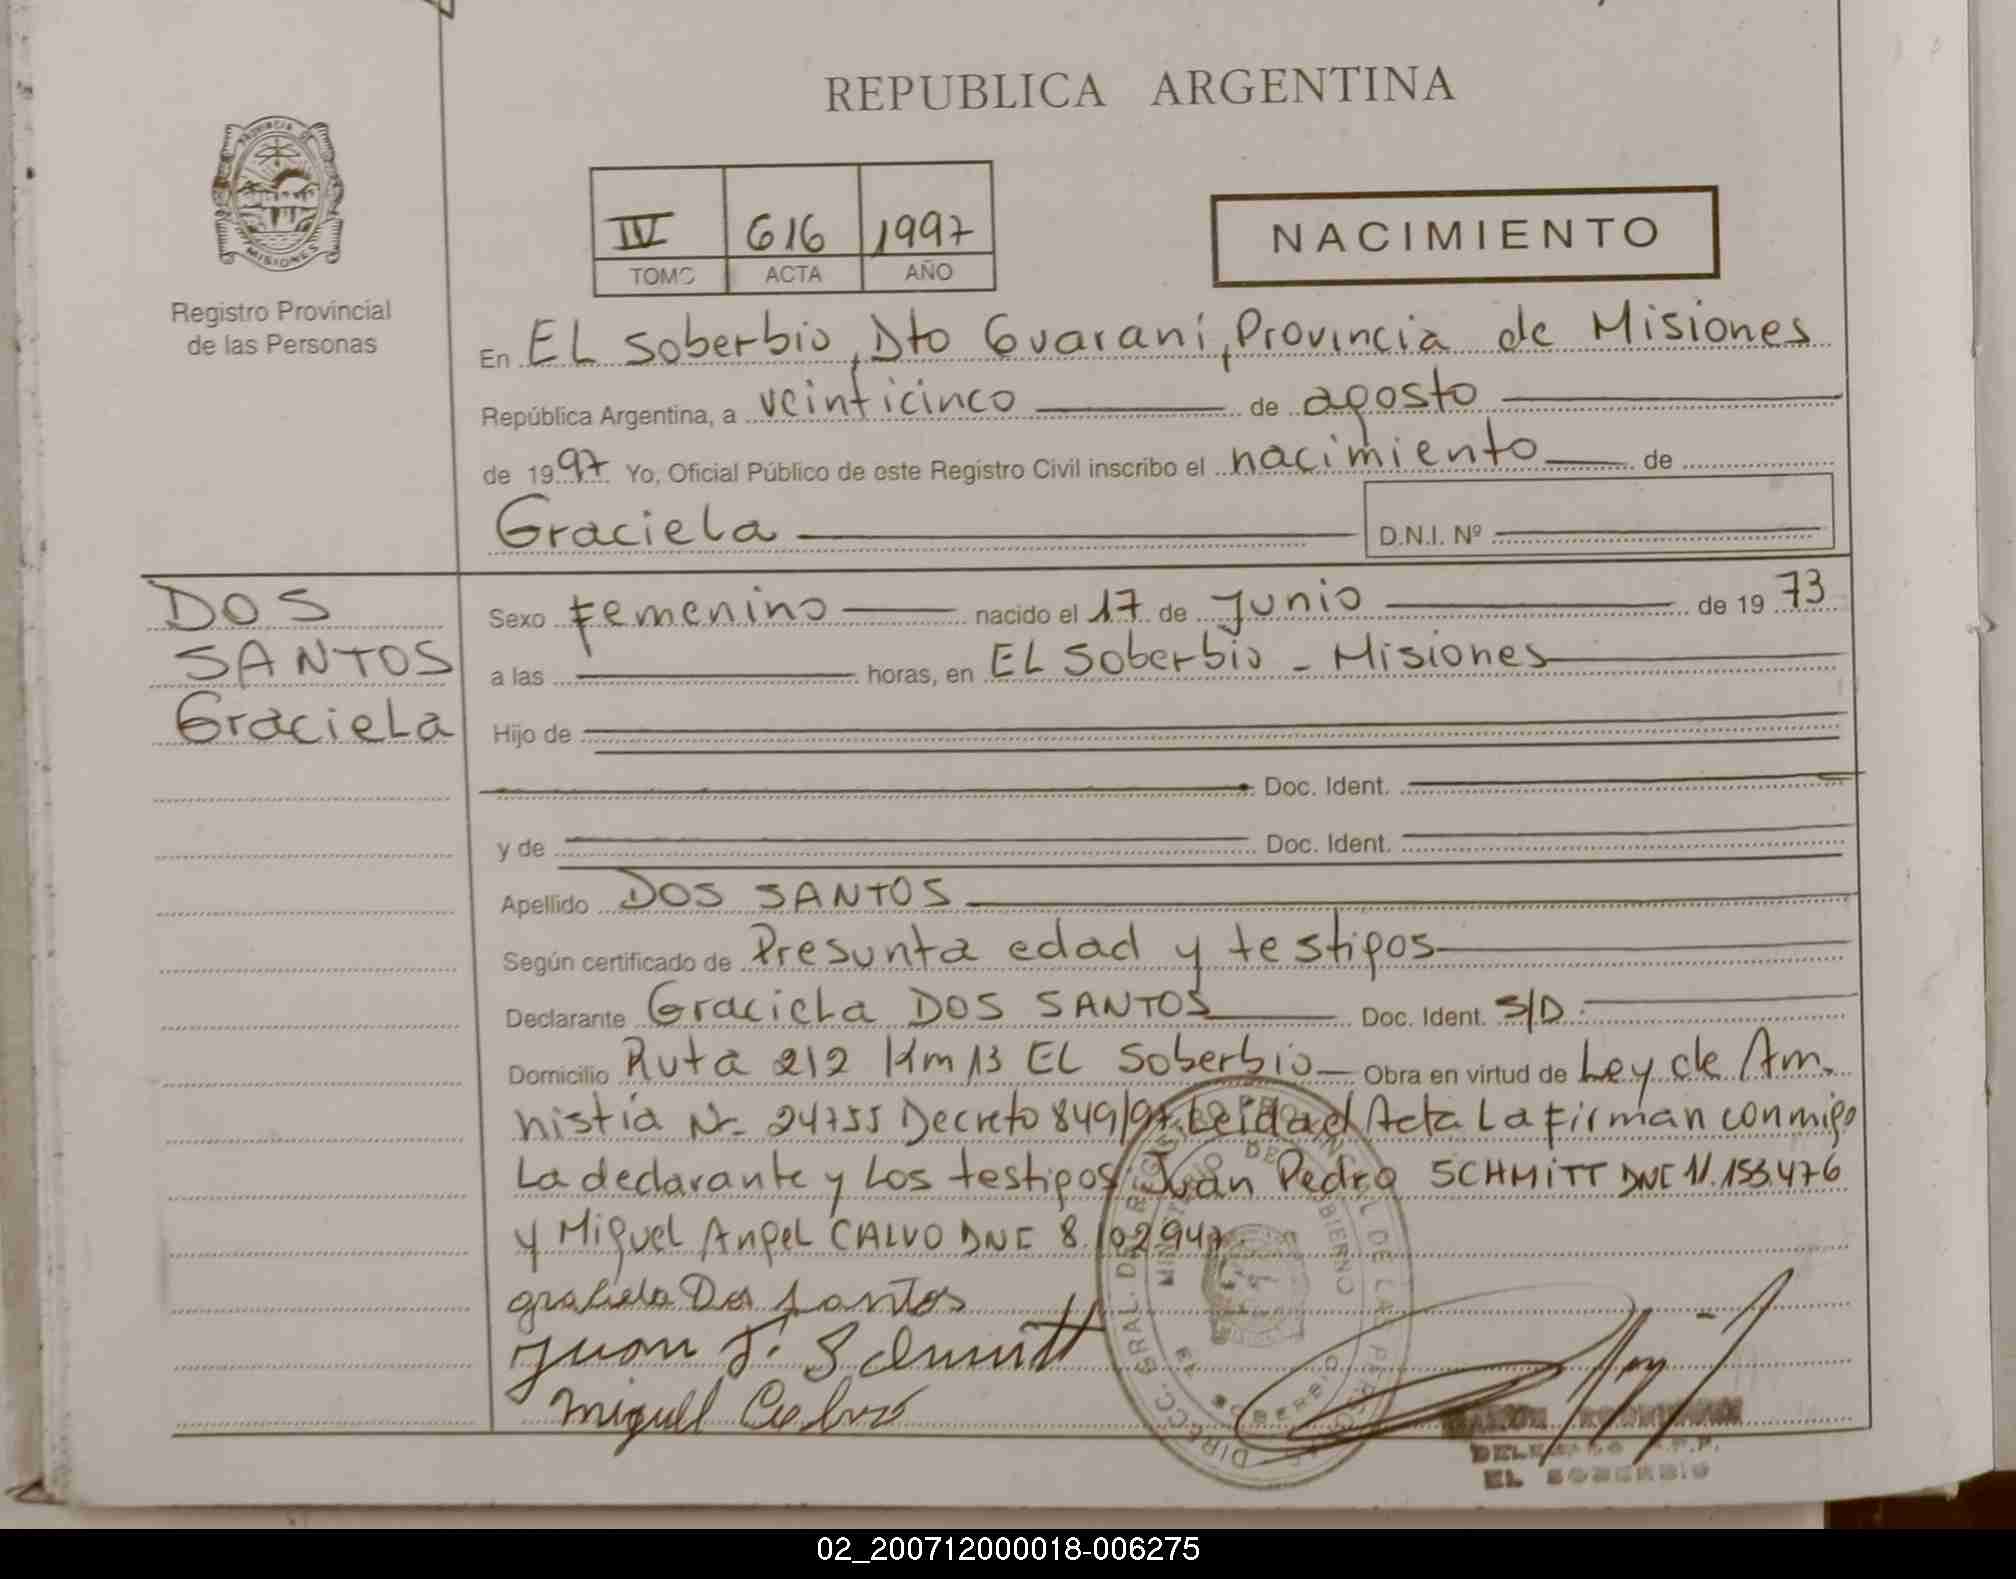 REPUBLICA ARGENTINA
PROVINCIA DE
MISIONES
Registro Provincial
de las Personas
IV 616 1997
TOMO ACTA AÑO
NACIMIENTO
En EL Soberbio, Dto Guaraní, Provincia de Misiones
República Argentina, a veinticinco de agosto
de 1997 Yo, Oficial Público de este Registro Civil inscribo el nacimiento de
Graciela D.N.I. Nº
DOS
SANTOS
Graciela
Sexo femenino nacido el 17 de Junio de 1973
a las horas, en EL Soberbio - Misiones
Hijo de
Doc. Ident.
y de Doc. Ident.
Apellido DOS SANTOS
Según certificado de Presunta edad y testigos
Declarante Graciela DOS SANTOS Doc. Ident. S/D
Domicilio Ruta 212 Km 13 EL Soberbio Obra en virtud de Ley de Am.
nistía Nº 24755 Decreto 849/97. Leida el Acta La firman conmigo
La declarante y Los testigos: Juan Pedro SCHMITT DNI 11.153.476
y Miguel Angel CALVO DNI 8.102947
graciela Dos santos
Juan P. Schmitt
Miguel Calvo
DIRECC. GRAL. DE REG. PROVINCIAL DE LAS PERSONAS
MINISTERIO DE GOBIERNO
EL SOBERBIO
DELEGADO R.P.P.
EL SOBERBIO
02_200712000018-006275